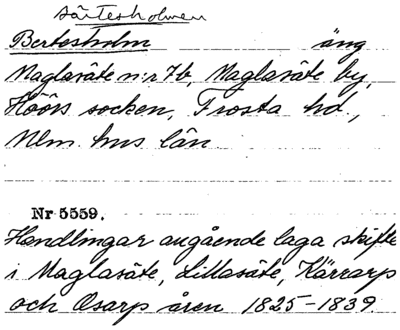 Bertesholm äng
Maglasäte n:r 7b, Maglasäte by,
Höörs socken, Frosta hd.,
Mlm. hus län
Nr 5559.
Handlingar angående laga skifte
i Maglasäte, Lillasäte, Kärrarp
och Osarp åren 1825-1839.